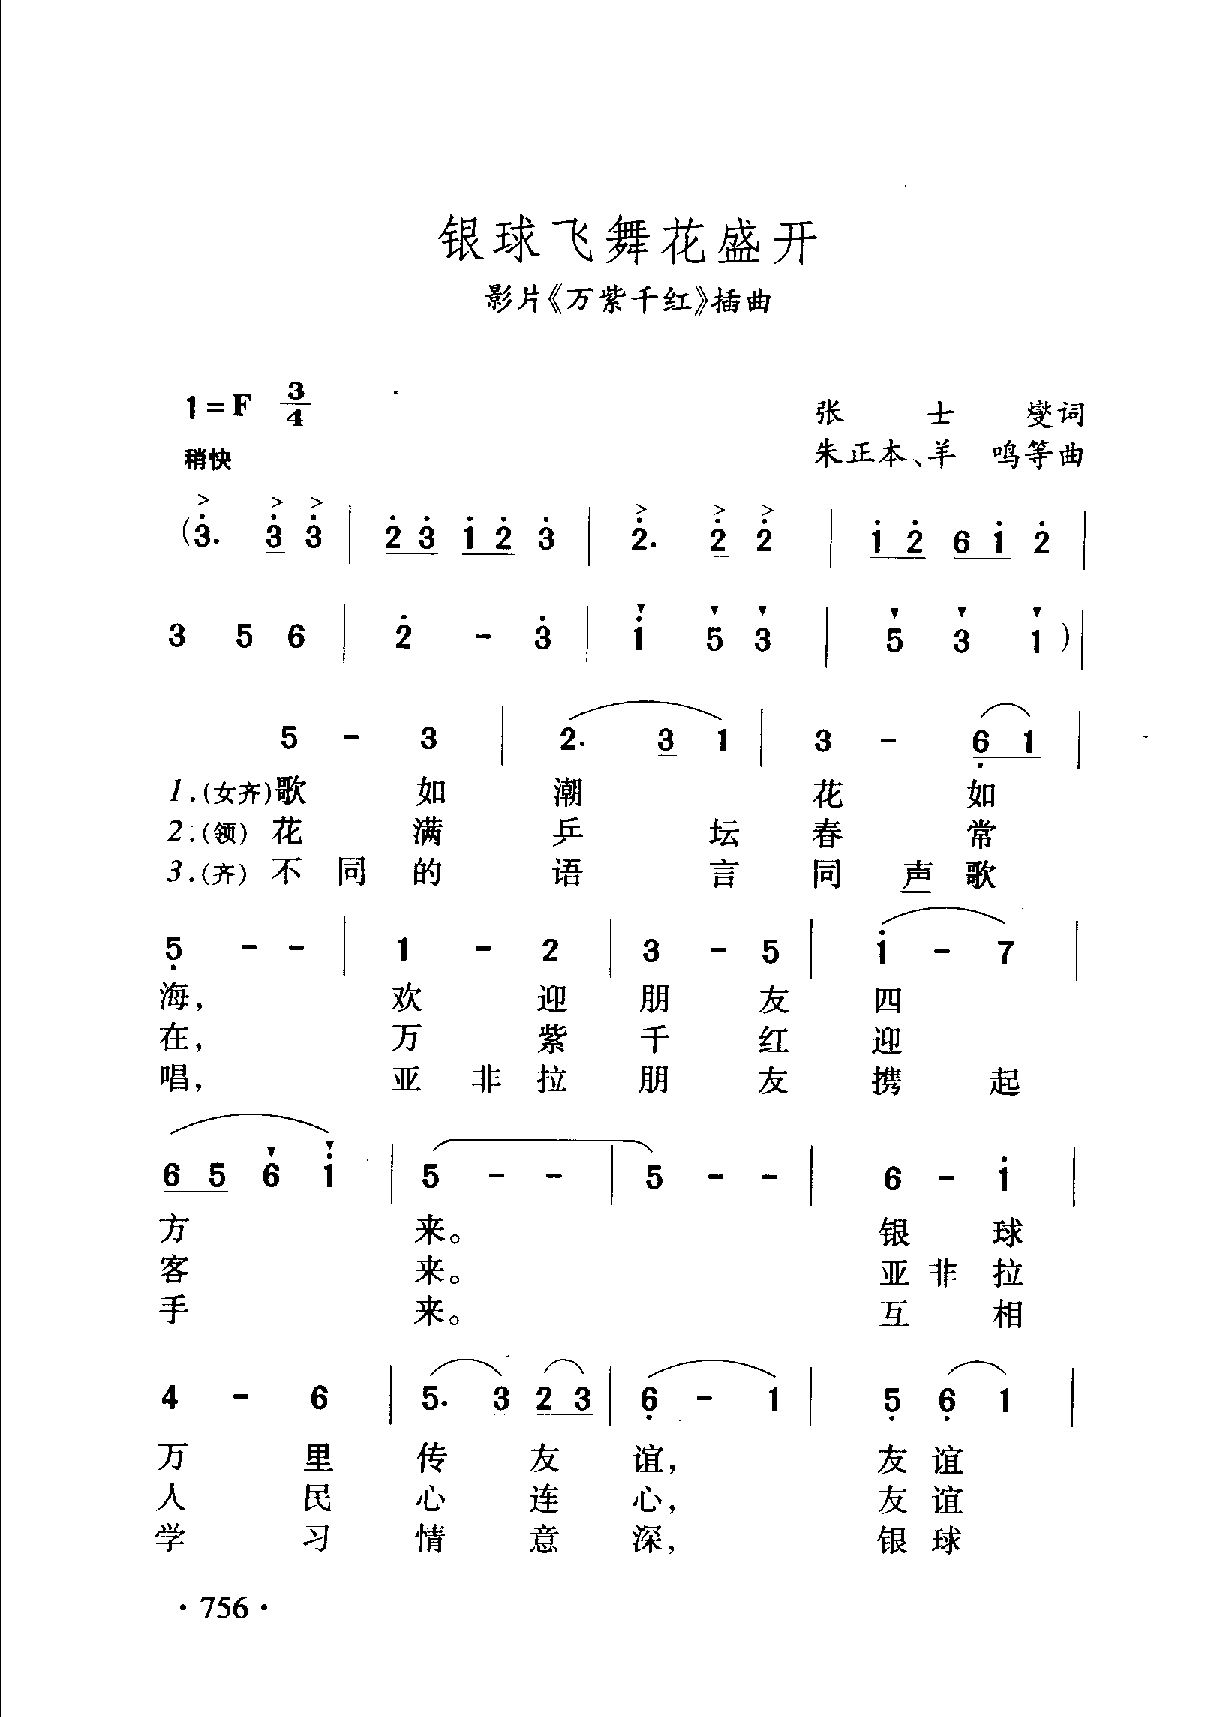 银球飞舞花盛开
影片《万紫千红》插曲
1=F 3/4
张士燮词
稍快
朱正本、羊鸣等曲
(3. 3 3 | 2 3 1 2 3 | 2. 2 2 | 1 2 6 1 2 |
3 5 6 | 2 - 3 | 1 5 3 | 5 3 1 )|
5 - 3 | 2. 3 1 | 3 - 6 1 |
1.(女齐)歌 如 潮 花 如
2.(领) 花 满 乒 坛 春 常
3.(齐) 不 同 的 语 言 同 声 歌
5 - - | 1 - 2 | 3 - 5 | 1 - 7 |
海, 欢 迎 朋 友 四
在, 万 紫 千 红 迎
唱, 亚 非 拉 朋 友 携 起
6 5 6 1 | 5 - - | 5 - - | 6 - 1 |
方 来。 银 球
客 来。 亚 非 拉
手 来。 互 相
4 - 6 | 5. 3 2 3 | 6 - 1 | 5 6 1 |
万 里 传 友 谊, 友 谊
人 民 心 连 心, 友 谊
学 习 情 意 深, 银 球
·756·